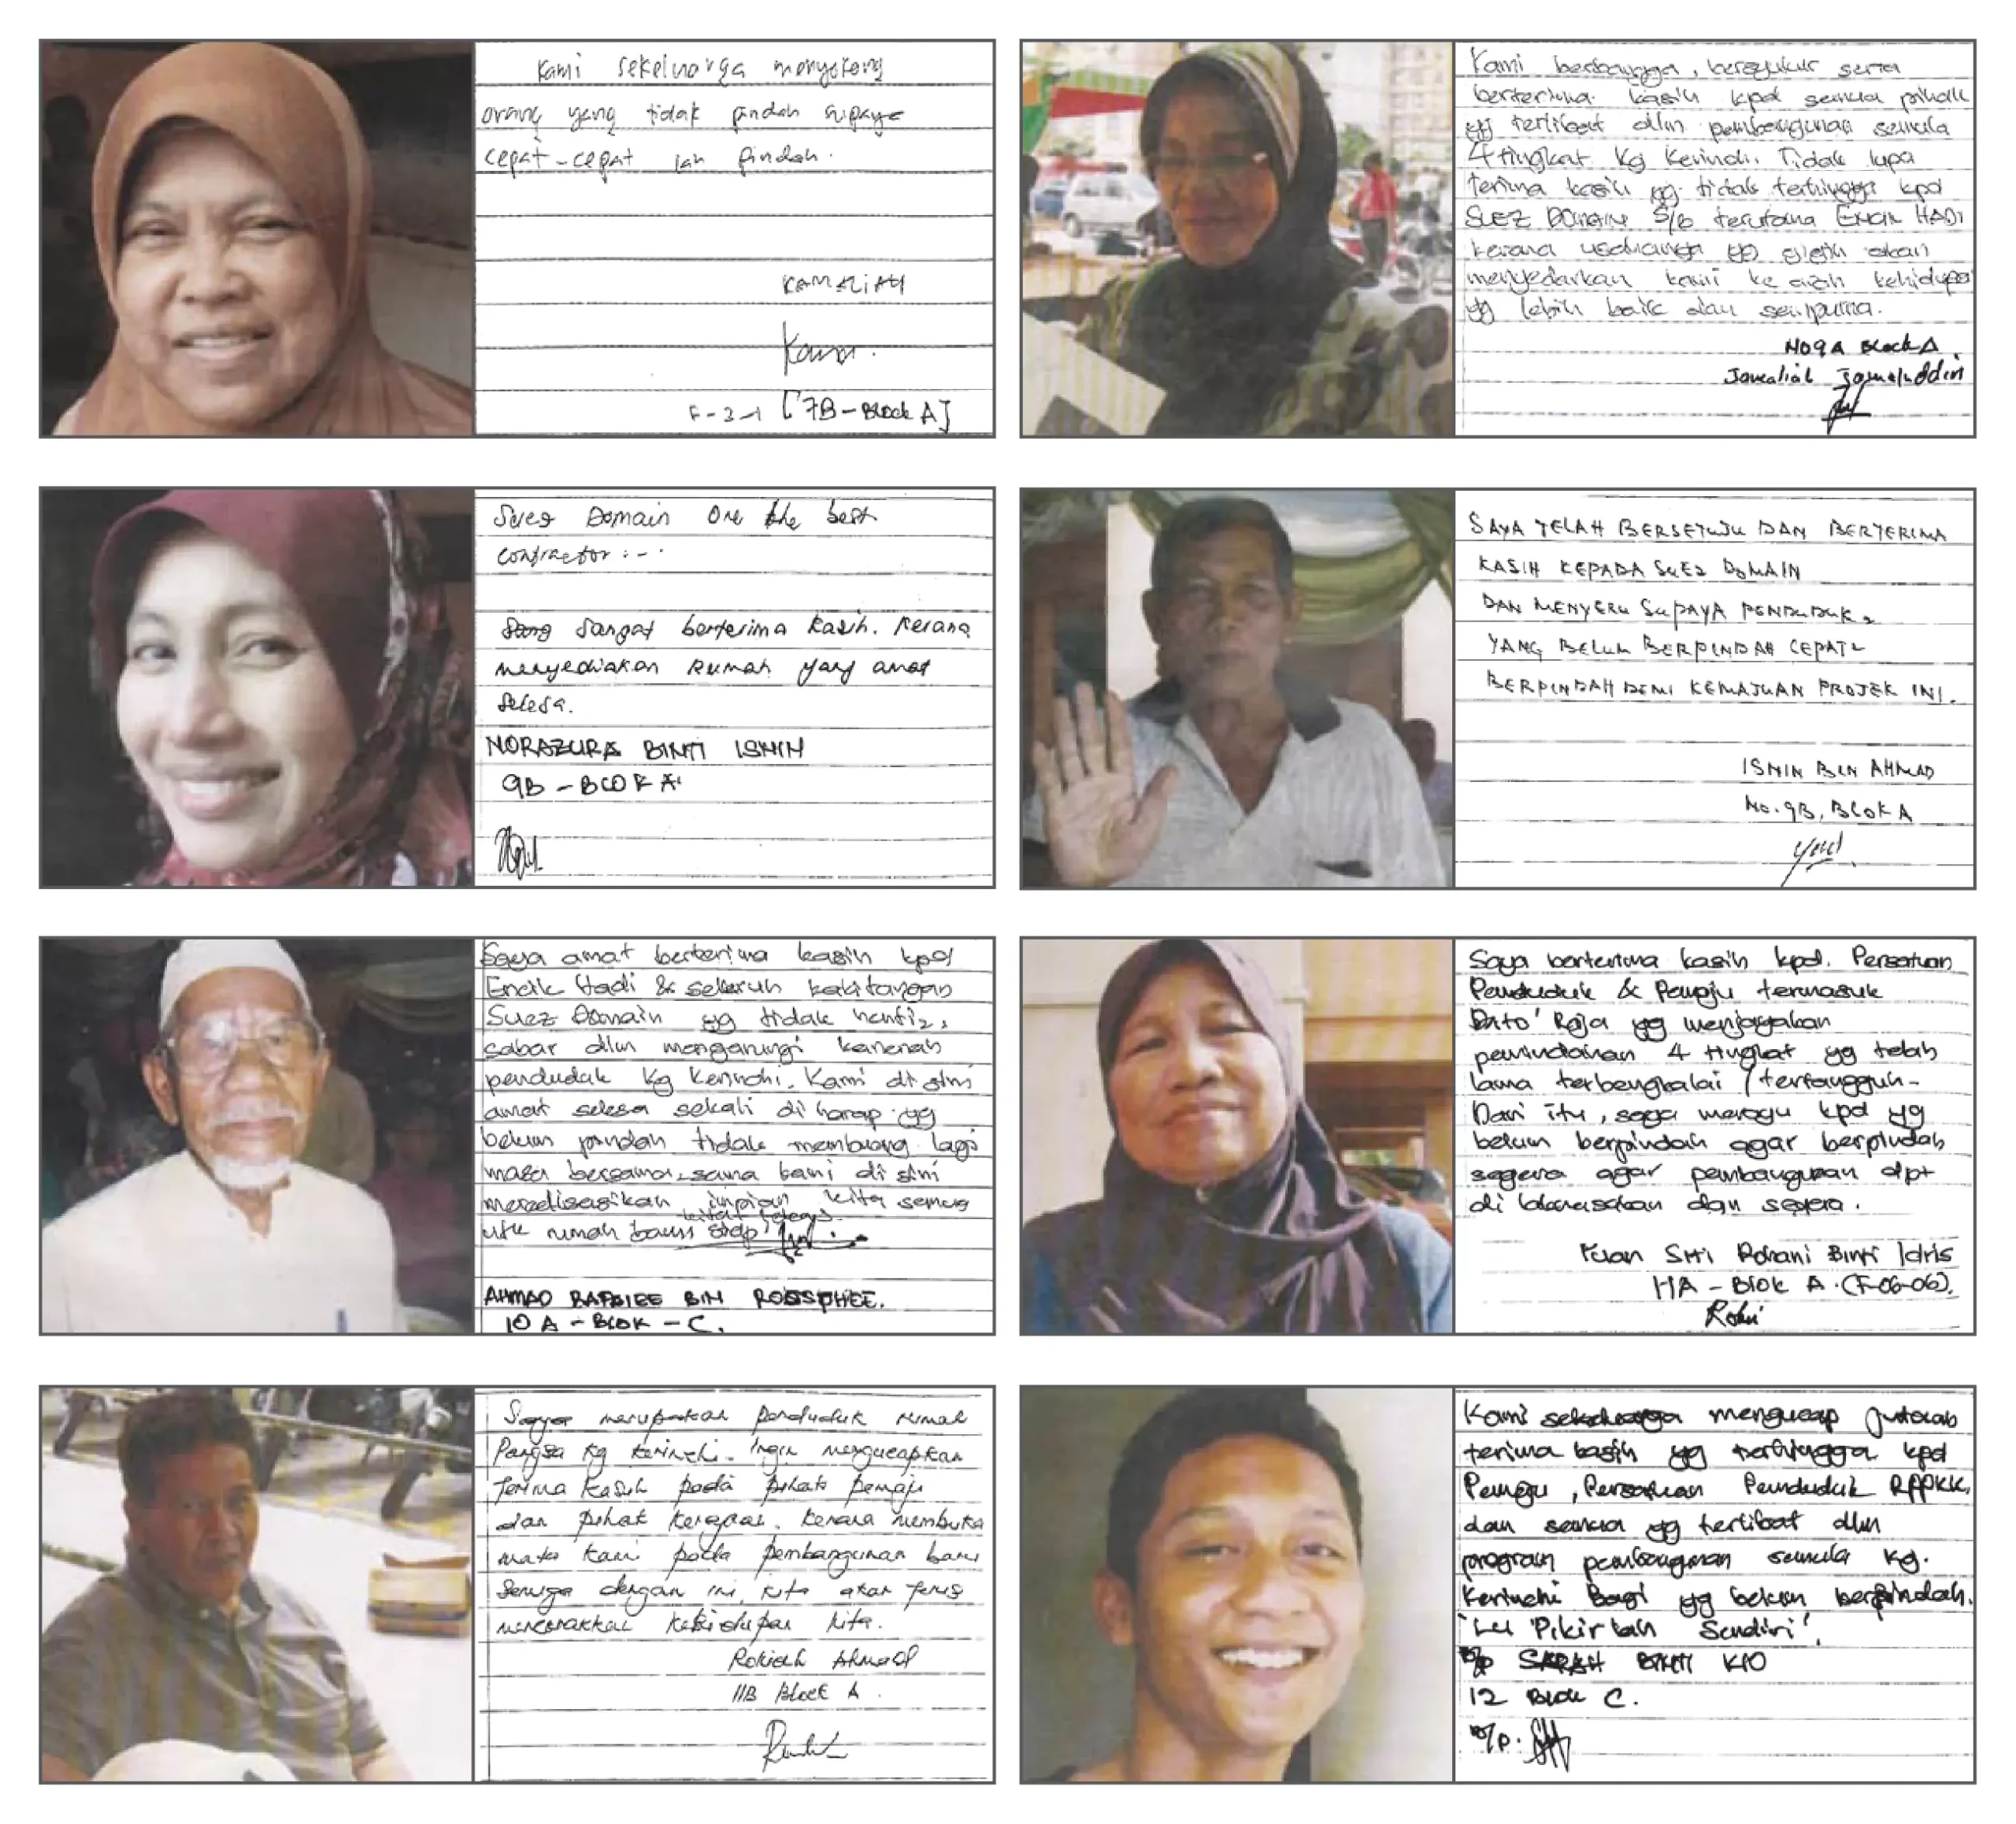 Kami sekeluarga menyokong
orang yang tidak pindah supaya
cepat-cepat lah pindah.
KAMALIAH
F-3-1 [7B-Block A]
Kami berbangga, bersyukur serta
berterima kasih kpd semua pihak
yg terlibat dlm pembangunan semula
4 tingkat Kg Kerinchi. Tidak lupa
terima kasih yg tidak terhingga kpd
SUEZ DOMAIN S/B terutama ENCIK HADI
kerana usahanya yg gigih akan
menyedarkan kami ke arah kehidupan
yg lebih baik dan sempurna.
NO 9A Block A.
Jamaluddin
Suez Domain One the best
contractor :-.
Sangat berterima kasih. Kerana
menyediakan Rumah yang amat
Selesa.
NORAZURA BINTI ISMIN
9B - BLOK A.
SAYA TELAH BERSETUJU DAN BERTERIMA
KASIH KEPADA SUEZ DOMAIN
DAN MENYERU SUPAYA PENDUDUK2
YANG BELUM BERPINDAH CEPAT2
BERPINDAH DEMI KEMAJUAN PROJEK INI.
ISMIN BIN AHMAD
No. 9B, BLOK A
Saya amat berterima kasih kpd
Encik Hadi & seluruh kakitangan
Suez Domain yg tidak henti2,
sabar dlm mengarungi karenah
penduduk Kg Kerinchi. Kami di sini
amat selesa sekali diharap yg
belum pindah tidak membuang lagi
masa bersama-sama kami di sini
merealisasikan impian kita semua
utk rumah baru
AHMAD BIN
10 A - BLOK - C.
Saya berterima kasih kpd. Persatuan
Penduduk & Pemaju termasuk
Dato' Raja yg menjayakan
pemindahan 4 tingkat yg telah
lama terbengkalai / tertangguh-
Dari itu, saya merayu kpd yg
belum berpindah agar berpindah
segera agar pembangunan dpt
di laksanakan dgn segera.
Puan Siti Rohani Binti Idris
11A - Blok A. (F-06-06).
Saya merupakan penduduk rumah
Pangsa Kg Kerinchi. Ingin mengucapkan
Terima Kasih pada pihak pemaju
dan pihak kerajaan. Kerana membuka
mata kami pada pembangunan baru
Semoga dengan ini, kita akan terus
kehidupan kita.
Rokiah Ahmad
11B Block A.
Kami sekeluarga mengucap jutaan
terima kasih yg terhingga kpd
Pemaju, Persatuan Penduduk RPPKK,
dan semua yg terlibat dlm
program pembangunan semula Kg.
Kerinchi Bagi yg belum berpindah.
'Lu Pikirlah Sendiri'.
b/p SARAH BINTI KIO
12 Blok C.
b/p.